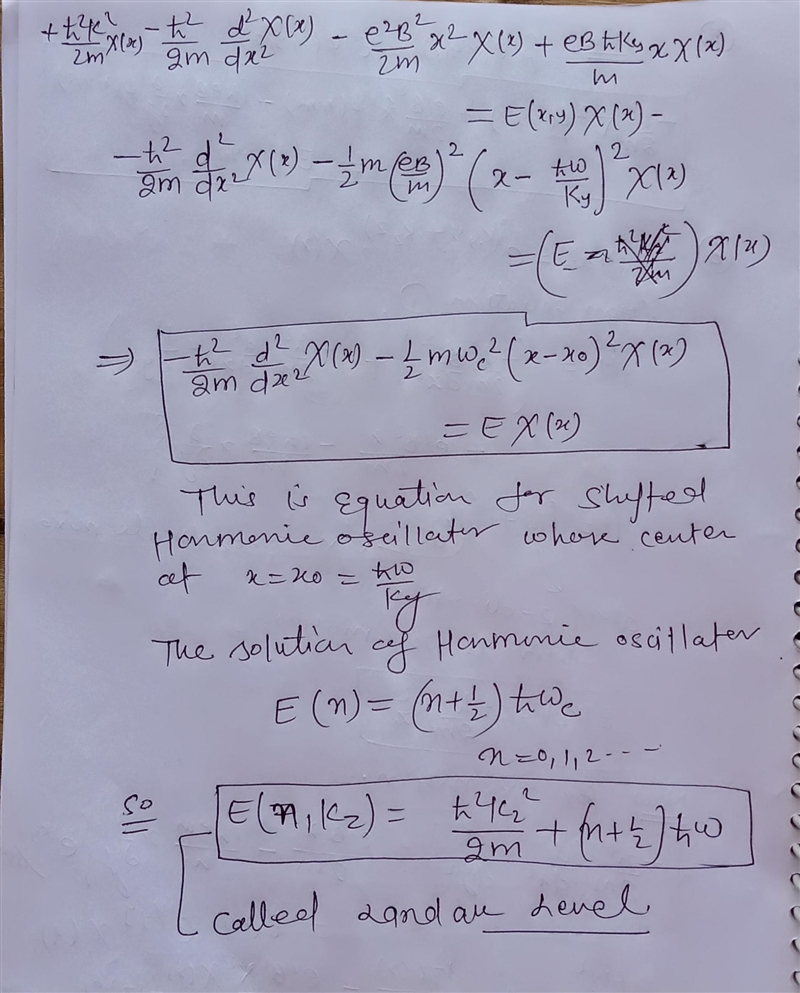 + ħ²k²/2m X(x) - ħ²/2m d²/dx² X(x) - e²B²/2m x² X(x) + eBħKy/m x X(x)
= E(x,y) X(x) -
-ħ²/2m d²/dx² X(x) - 1/2 m (eB/m)² (x - ħω/Ky)² X(x)
= (E - ħ²Ky²/2m) X(x)
⇒ -ħ²/2m d²/dx² X(x) - 1/2 mωc² (x-x0)² X(x)
= E X(x)
This is Equation for Shifted
Harmonic oscillator whose center
at x = x0 = ħω/Ky
The solution of Harmonic oscillator
E(n) = (n+1/2) ħωc
n = 0,1,2 ----
so E(n,kz) = ħ²kz²/2m + (n+1/2) ħω
called Landau Level